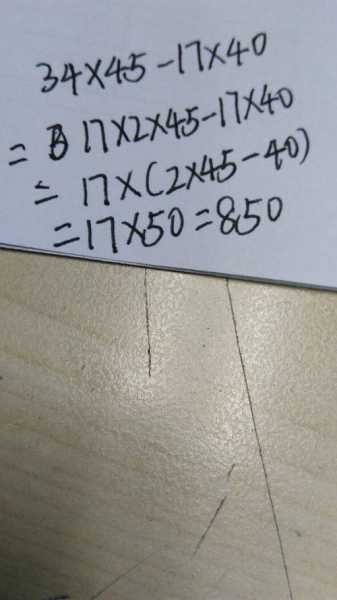 34×45-17×40
=17×2×45-17×40
=17×(2×45-40)
=17×50=850